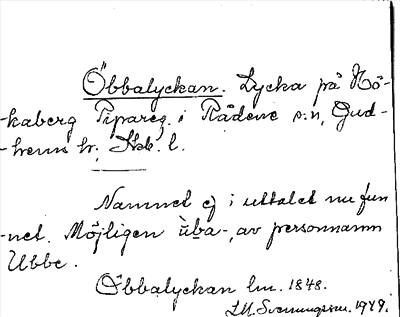 Öbbalyckan. Lycka på Hö-
-kaberg Pipareg. i Rådene s:n, Gud-
-hems hr, Skb. l.
Namnet ej i uttalet nu fun
-net. Möjligen ùba-, av personnamn
Ubbe.
Öbbalyckan lm. 1848.
J.M. Svenungsson. 1949.